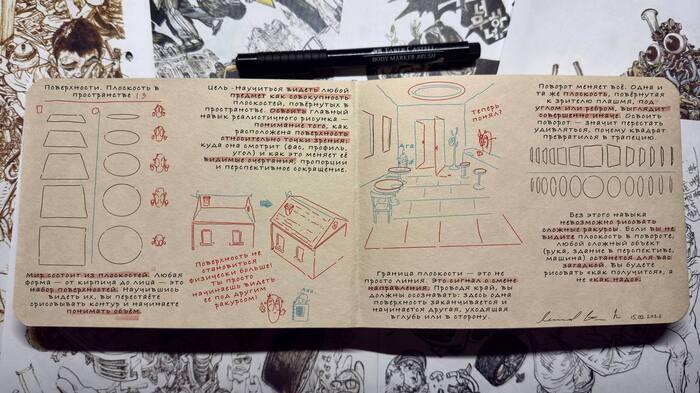 FABER-CASTELL
BODY MARKER BRUSH
Поверхности. Плоскость в
пространстве 13
Мир состоит из плоскостей. Любая
форма — от кирпича до лица — это
набор поверхностей. Научившись
видеть их, вы перестаёте
срисовывать контур и начинаете
понимать объём.
Цель - Научиться видеть любой
предмет как совокупность
плоскостей, повёрнутых в
пространстве. Освоить главный
навык реалистичного рисунка —
понимание того, как
расположена поверхность
относительно точки зрения:
куда она смотрит (фас, профиль,
угол) и как это меняет её
видимые очертания, пропорции
и перспективное сокращение.
Поверхность не
становиться
физически больше!
Ты просто
начинаешь видеть
ее под другим
ракурсом!
Ага
Ага
Теперь
понял?
Граница плоскости — это не
просто линия. Это сигнал о смене
направления. Проводя край, вы
должны осознавать: здесь одна
поверхность заканчивается и
начинается другая, уходящая
вглубь или в сторону.
Поворот меняет всё. Одна и
та же плоскость, повёрнутая
к зрителю плашмя, под
углом или ребром, выглядит
совершенно иначе. Освоить
поворот — значит перестать
удивляться, почему квадрат
превратился в трапецию
Без этого навыка
невозможно рисовать
сложные ракурсы. Если вы не
видите плоскость в повороте,
любой сложный объект
(рука, здание в перспективе,
машина) останется для вас
загадкой. Вы будете
рисовать «как получится», а
не «как надо».